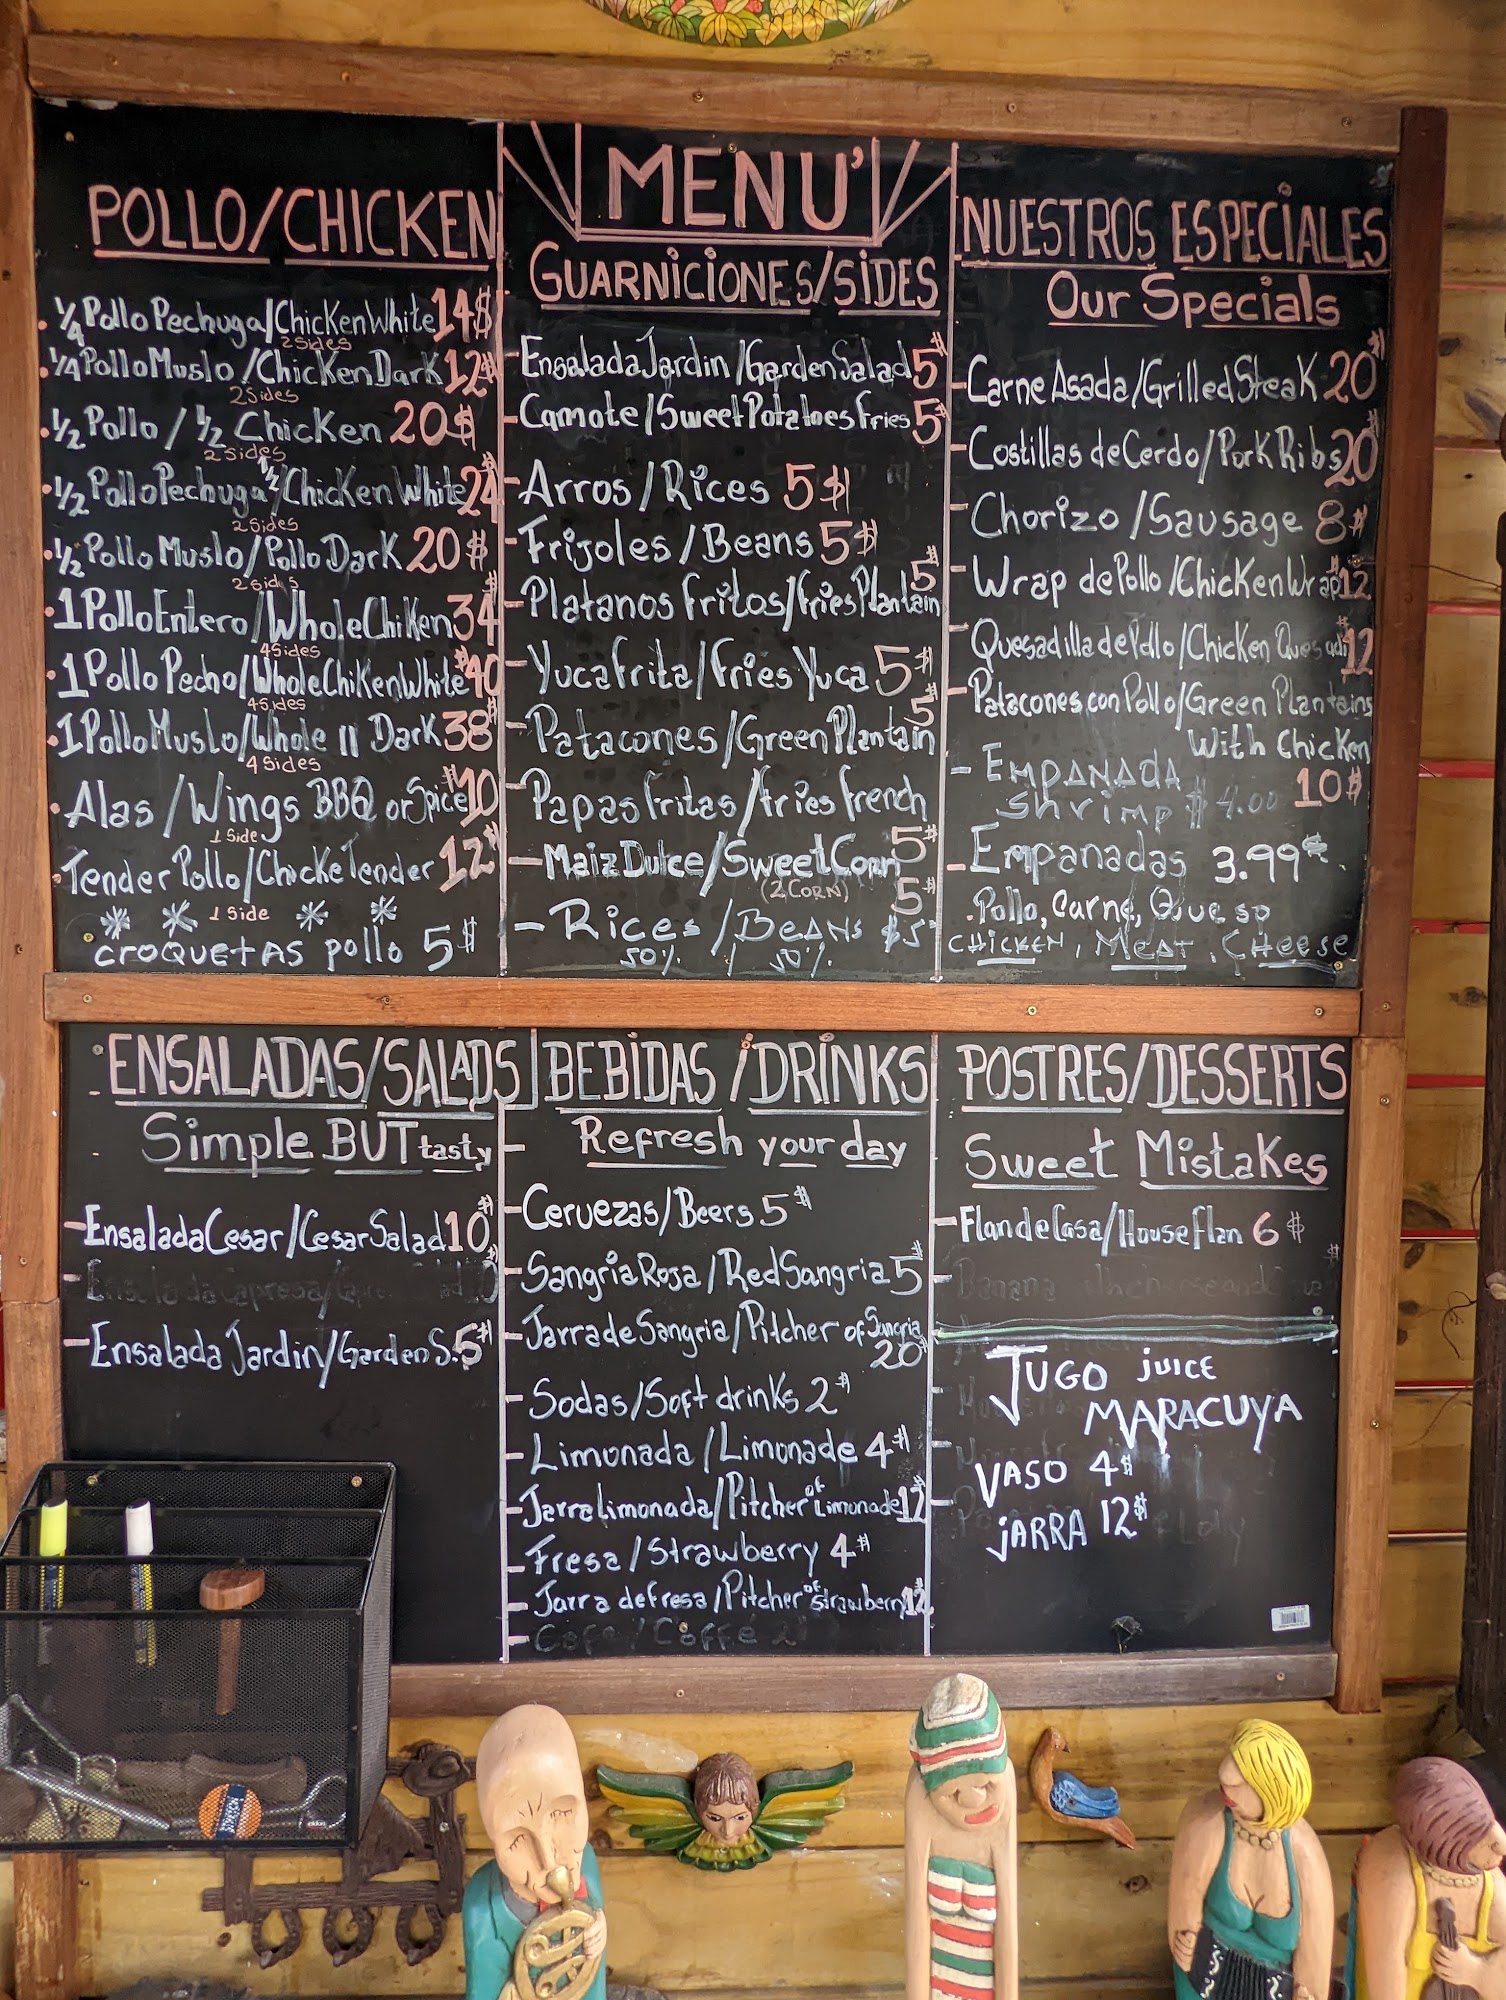 MENU'
POLLO/CHICKEN
1/4 Pollo Pechuga/Chicken White 14$
2 Sides
1/4 Pollo Muslo/Chicken Dark 12$
2 Sides
1/2 Pollo / 1/2 Chicken 20$
2 Sides
1/2 Pollo Pechuga 1/2/Chicken White 24$
2 Sides
1/2 Pollo Muslo/Pollo Dark 20$
2 Sides
1 Pollo Entero/Whole Chiken 34$
4 Sides
1 Pollo Pecho/Whole Chiken White 40$
4 Sides
1 Pollo Muslo/Whole 11 Dark 38$
4 Sides
Alas/Wings BBQ or Spice 10$
1 Side
Tender Pollo/Chicke Tender 12$
1 Side
CROQUETAS pollo 5$
GUARNICIONES/SIDES
Ensalada Jardin/Garden Salad 5$
Camote/Sweet Potatoes Fries 5$
Arros/Rices 5$
Frijoles/Beans 5$
Platanos Fritos/Fries Plantain 5$
Yuca Frita/Fries Yuca 5$
Patacones/Green Plantain 5$
Papas Fritas/Fries French 5$
Maiz Dulce/Sweet Corn 5$
(2 CORN)
Rices/BEANS $5
50% / 50%
NUESTROS ESPECIALES
Our Specials
Carne Asada/Grilled Steak 20$
Costillas de Cerdo/Pork Ribs 20$
Chorizo/Sausage 8$
Wrap de Pollo/Chicken Wrap 12$
Quesadilla de Pollo/Chicken Quesadi 12
Patacones con Pollo/Green Plantains
With Chicken
10$
EMPANADA
Shrimp $4.00
Empanadas 3.99$
.Pollo, Carne, Queso
CHICKEN, MEAT, CHEESE
ENSALADAS/SALADS
Simple BUT tasty
Ensalada Cesar/Cesar Salad 10$
Ensalada Capresa/
Ensalada Jardin/Garden S. 5$
BEBIDAS/DRINKS
Refresh your day
Cervezas/Beers 5$
Sangria Roja/Red Sangria 5$
Jarra de Sangria/Pitcher of Sangria
20$
Sodas/Soft drinks 2$
Limonada/Limonade 4$
Jarra Limonada/Pitcher of Limonade 12$
Fresa/Strawberry 4$
Jarra de Fresa/Pitcher of Strawberry 12
Cafe/Coffe 2
POSTRES/DESSERTS
Sweet Mistakes
Flan de Casa/House Flan 6$
Banana
JUGO juice
MARACUYA
VASO 4$
jARRA 12$